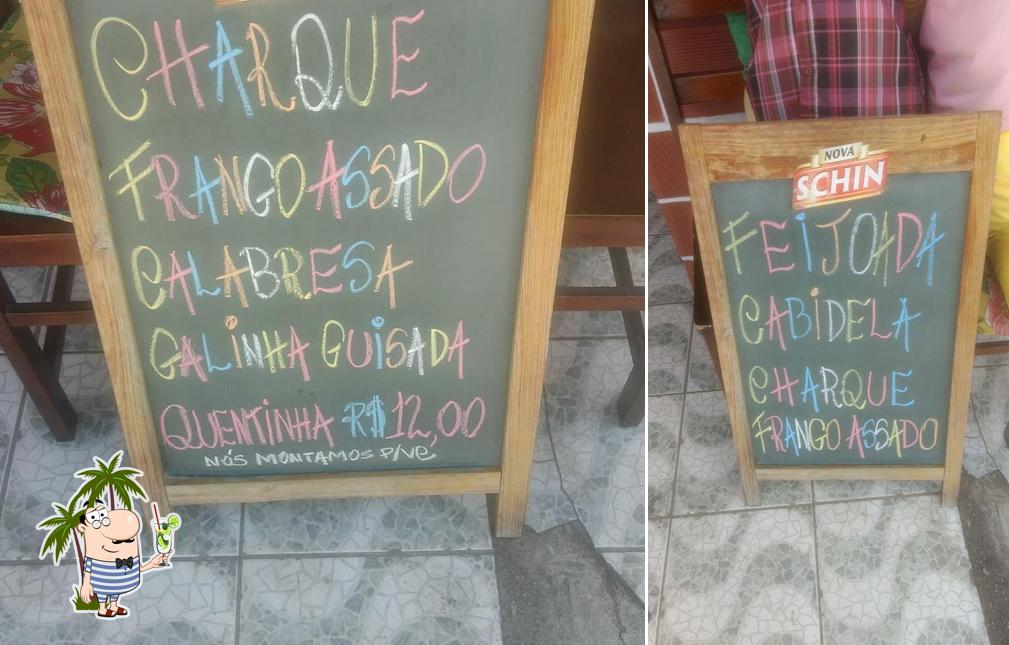 CHARQUE
FRANGO ASSADO
CALABRESA
GALINHA GUISADA
QUENTINHA R$12,00
NÓS MONTAMOS P/VC
NOVA
SCHIN
FEIJOADA
CABIDELA
CHARQUE
FRANGO ASSADO